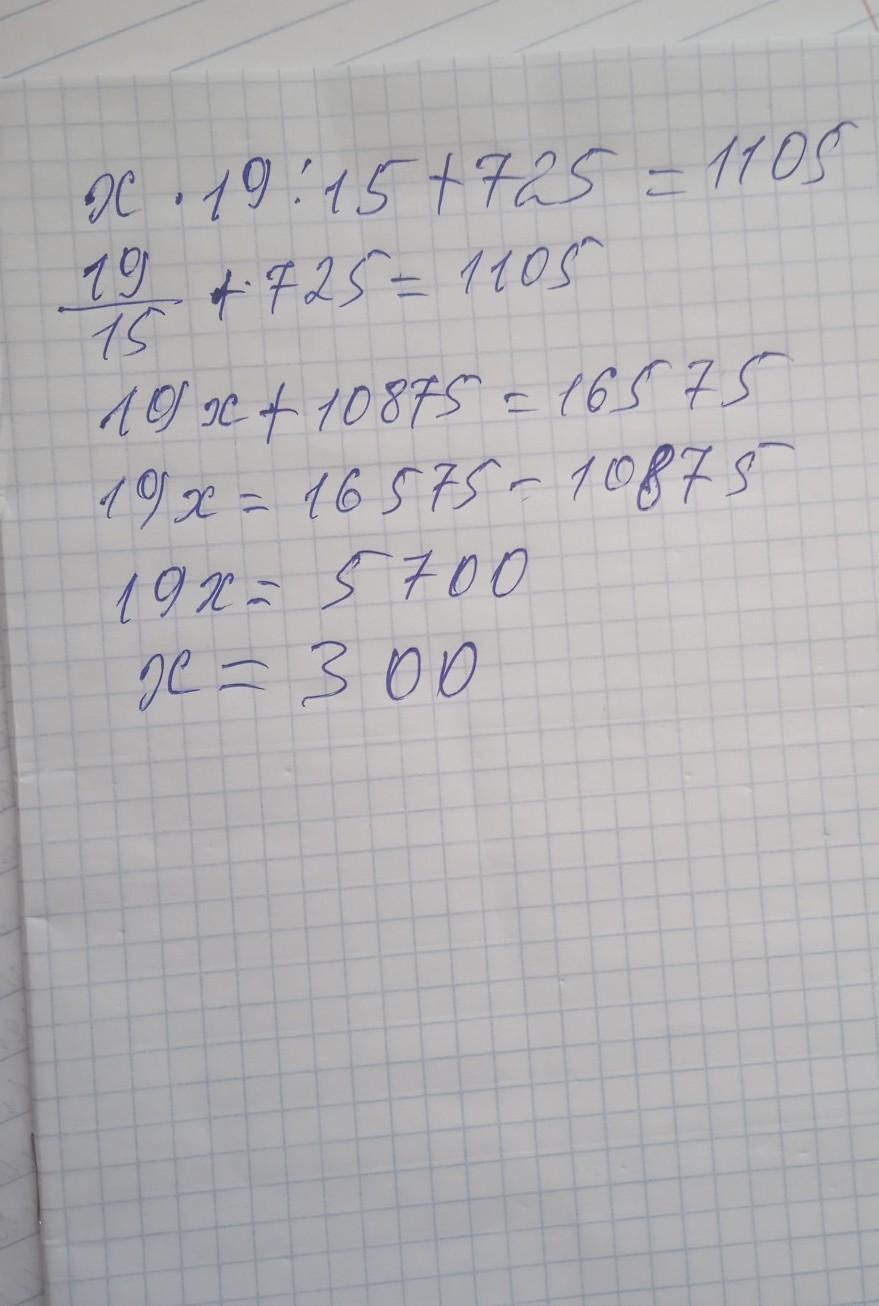 x · 19 : 15 + 725 = 1105
19/15 + 725 = 1105
19x + 10875 = 16575
19x = 16575 - 10875
19x = 5700
x = 300